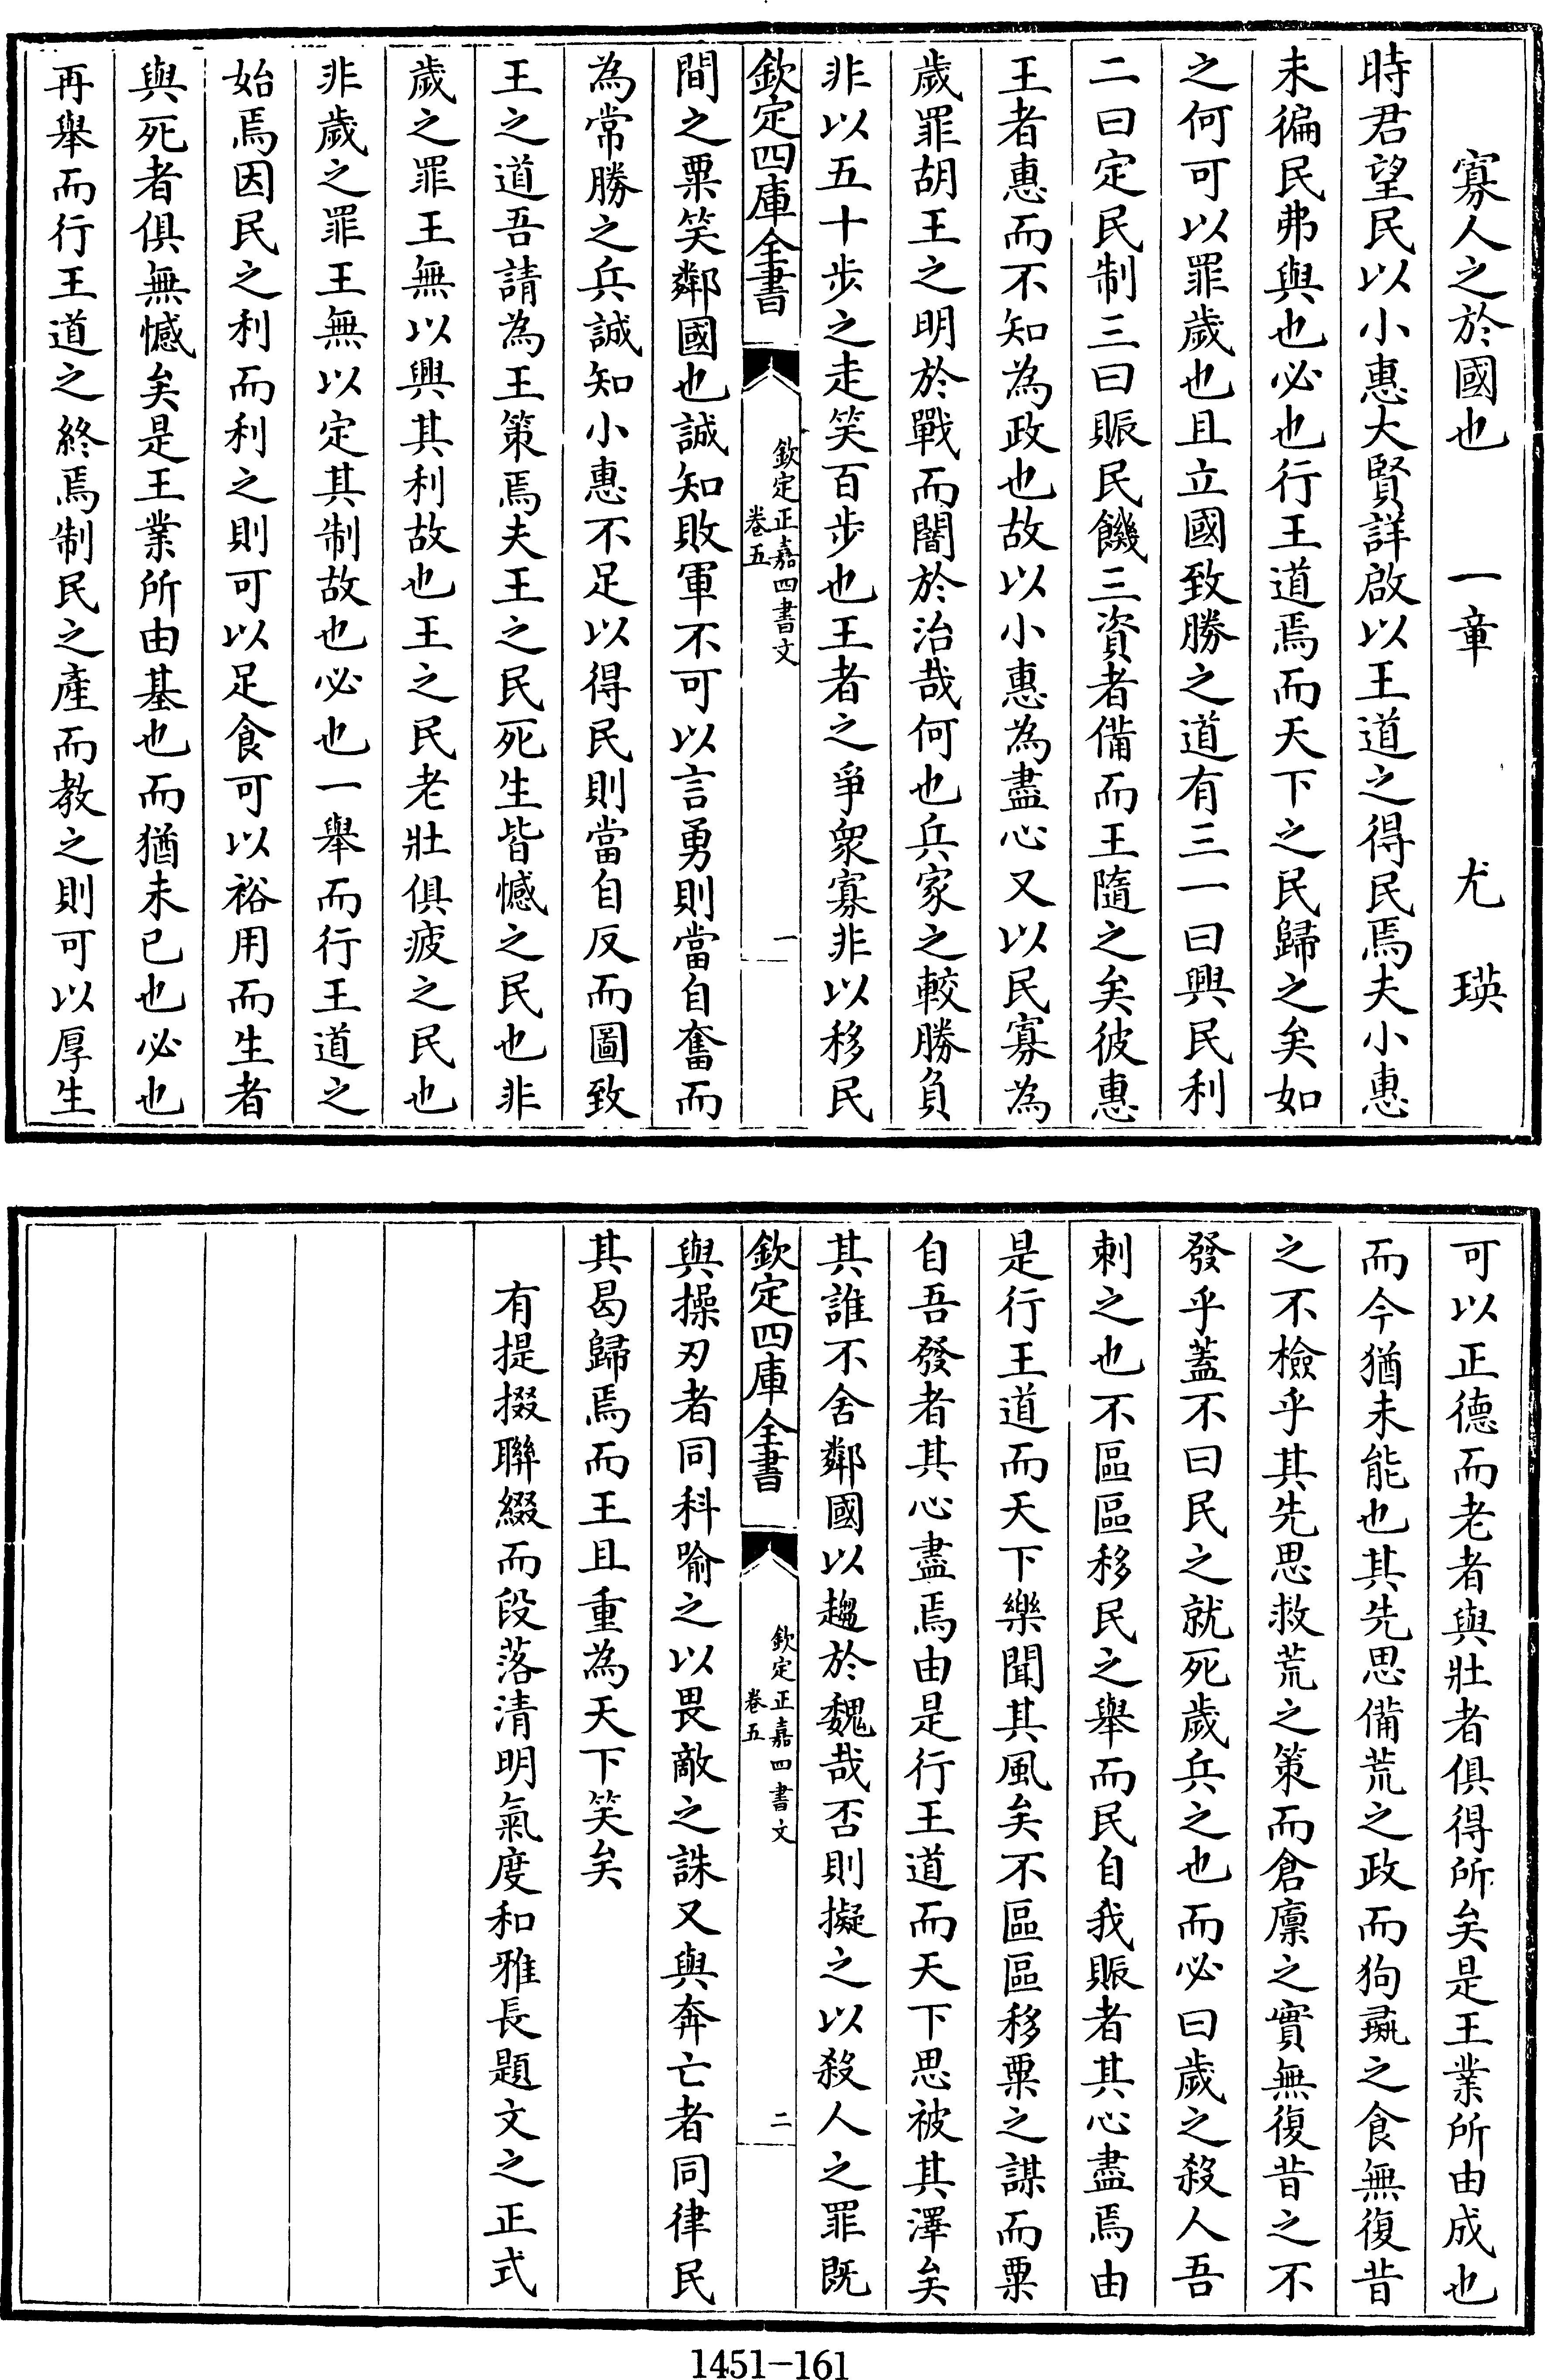 寡人之於國也　一章　尤瑛
時君望民以小惠大賢詳啟以王道之得民焉夫小惠
未徧民弗與也必也行王道焉而天下之民歸之矣如
之何可以罪歲也且立國致勝之道有三一曰興民利
二曰定民制三曰賑民饑三資者備而王隨之矣彼惠
王者惠而不知為政也故以小惠為盡心又以民寡為
歲罪胡王之明於戰而闇於治哉何也兵家之較勝負
非以五十步之走笑百步也王者之爭衆寡非以移民
欽定四庫全書
欽定正嘉四書文
卷五
一
間之粟笑鄰國也誠知敗軍不可以言勇則當自奮而
為常勝之兵誠知小惠不足以得民則當自反而圖致
王之道吾請為王策焉夫王之民死生皆憾之民也非
歲之罪王無以興其利故也王之民老壯俱疲之民也
非歲之罪王無以定其制故也必也一舉而行王道之
始焉因民之利而利之則可以足食可以裕用而生者
與死者俱無憾矣是王業所由基也而猶未已也必也
再舉而行王道之終焉制民之產而教之則可以厚生
可以正德而老者與壯者俱得所矣是王業所由成也
而今猶未能也其先思備荒之政而狗彘之食無復昔
之不檢乎其先思救荒之策而倉廩之實無復昔之不
發乎蓋不曰民之就死歲兵之也而必曰歲之殺人吾
刺之也不區區移民之舉而民自我賑者其心盡焉由
是行王道而天下樂聞其風矣不區區移粟之謀而粟
自吾發者其心盡焉由是行王道而天下思被其澤矣
其誰不舍鄰國以趨於魏哉否則擬之以殺人之罪既
欽定四庫全書
欽定正嘉四書文
卷五
二
與操刃者同科喻之以畏敵之誅又與奔亡者同律民
其曷歸焉而王且重為天下笑矣
有提掇聯綴而段落清明氣度和雅長題文之正式
1451-161